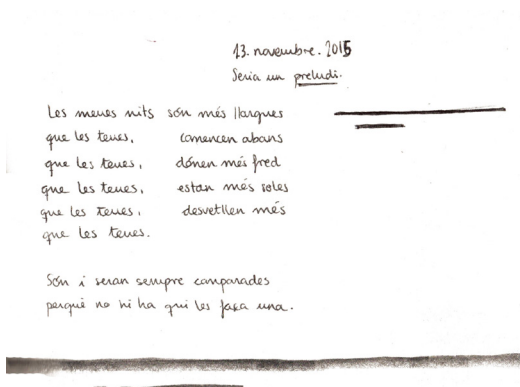 13. novembre. 2015
Seria un preludi.
Les meues nits són més llargues
que les teues, comencen abans
que les teues, dónen més fred
que les teues, estan més soles
que les teues, desvetllen més
que les teues.
Són i seran sempre comparades
perquè no hi ha qui les faça una.